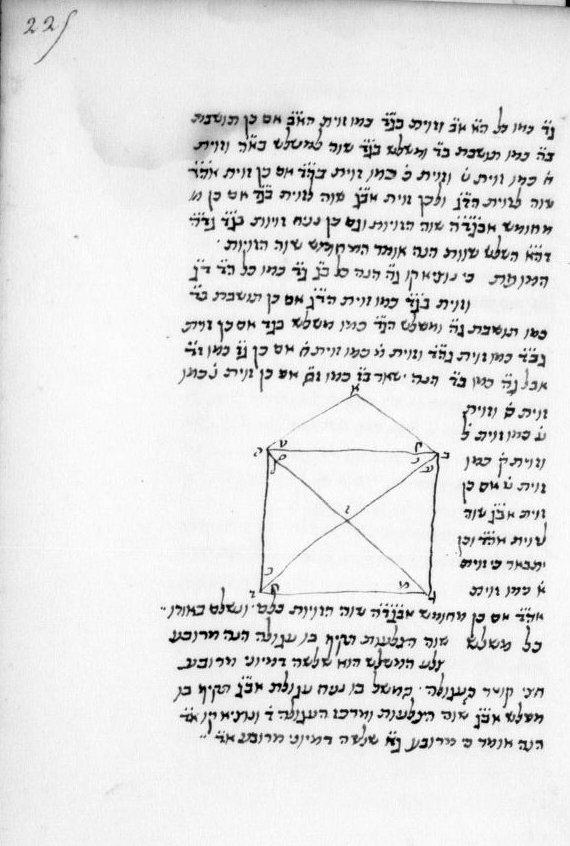 225
גד כמו כל הא אב וזוית בגד כמו זוית האב אם כן תושבת
בה כמו תושבת בד ומשלש בגד שוה למשלש באה וזוית
כמו זוית וזוית כמו זוית בהד אם כן זוית אהד
שוה לזוית הדג ולכן זוית אבג שוה לזוית בגד אם כן
מחומש אבגדה שוה הזויות וגם כן נניח זויות בגד גדה
דהא השלש שוות הנה אומר המחומש שוה הזויות
המופת כי נוציא קו גה הנה כל בג גד כמו כל הד דג
וזוית בגד כמו זוית הדג אם כן תושבת בד
כמו תושבת גה ומשלש הגד כמו משלש בגד אם כן זוית
גבד כמו זוית גהד וזוית כמו זוית אם כן גז כמו זד
אבל גה כמו בד הנה ישאר בז כמו זה אם כן זוית נ כמו
זוית ס וזוית
כמו זוית ל
וזוית ק כמו
זוית אם כן
זוית אבג שוה
לזוית אהד וכן
יתבאר כי זוית
א כמו זוית
אהד אם כן מחומש אבגדה שוה הזויות כלם ונשלם באורו
כל משלש שוה הצלעות תקיף בו עגולה הנה מרובע
צלע המשלש הוא שלשה דמיוני מרובע
חצי קוטר העגולה המשל בו נניח עגולת אבג תקיף בו
משלש אבג שוה הצלעות ומרכז העגולה ד ונוציא קו אד
הנה אומר כי מרובע גא שלשה דמיוני מרובע אד